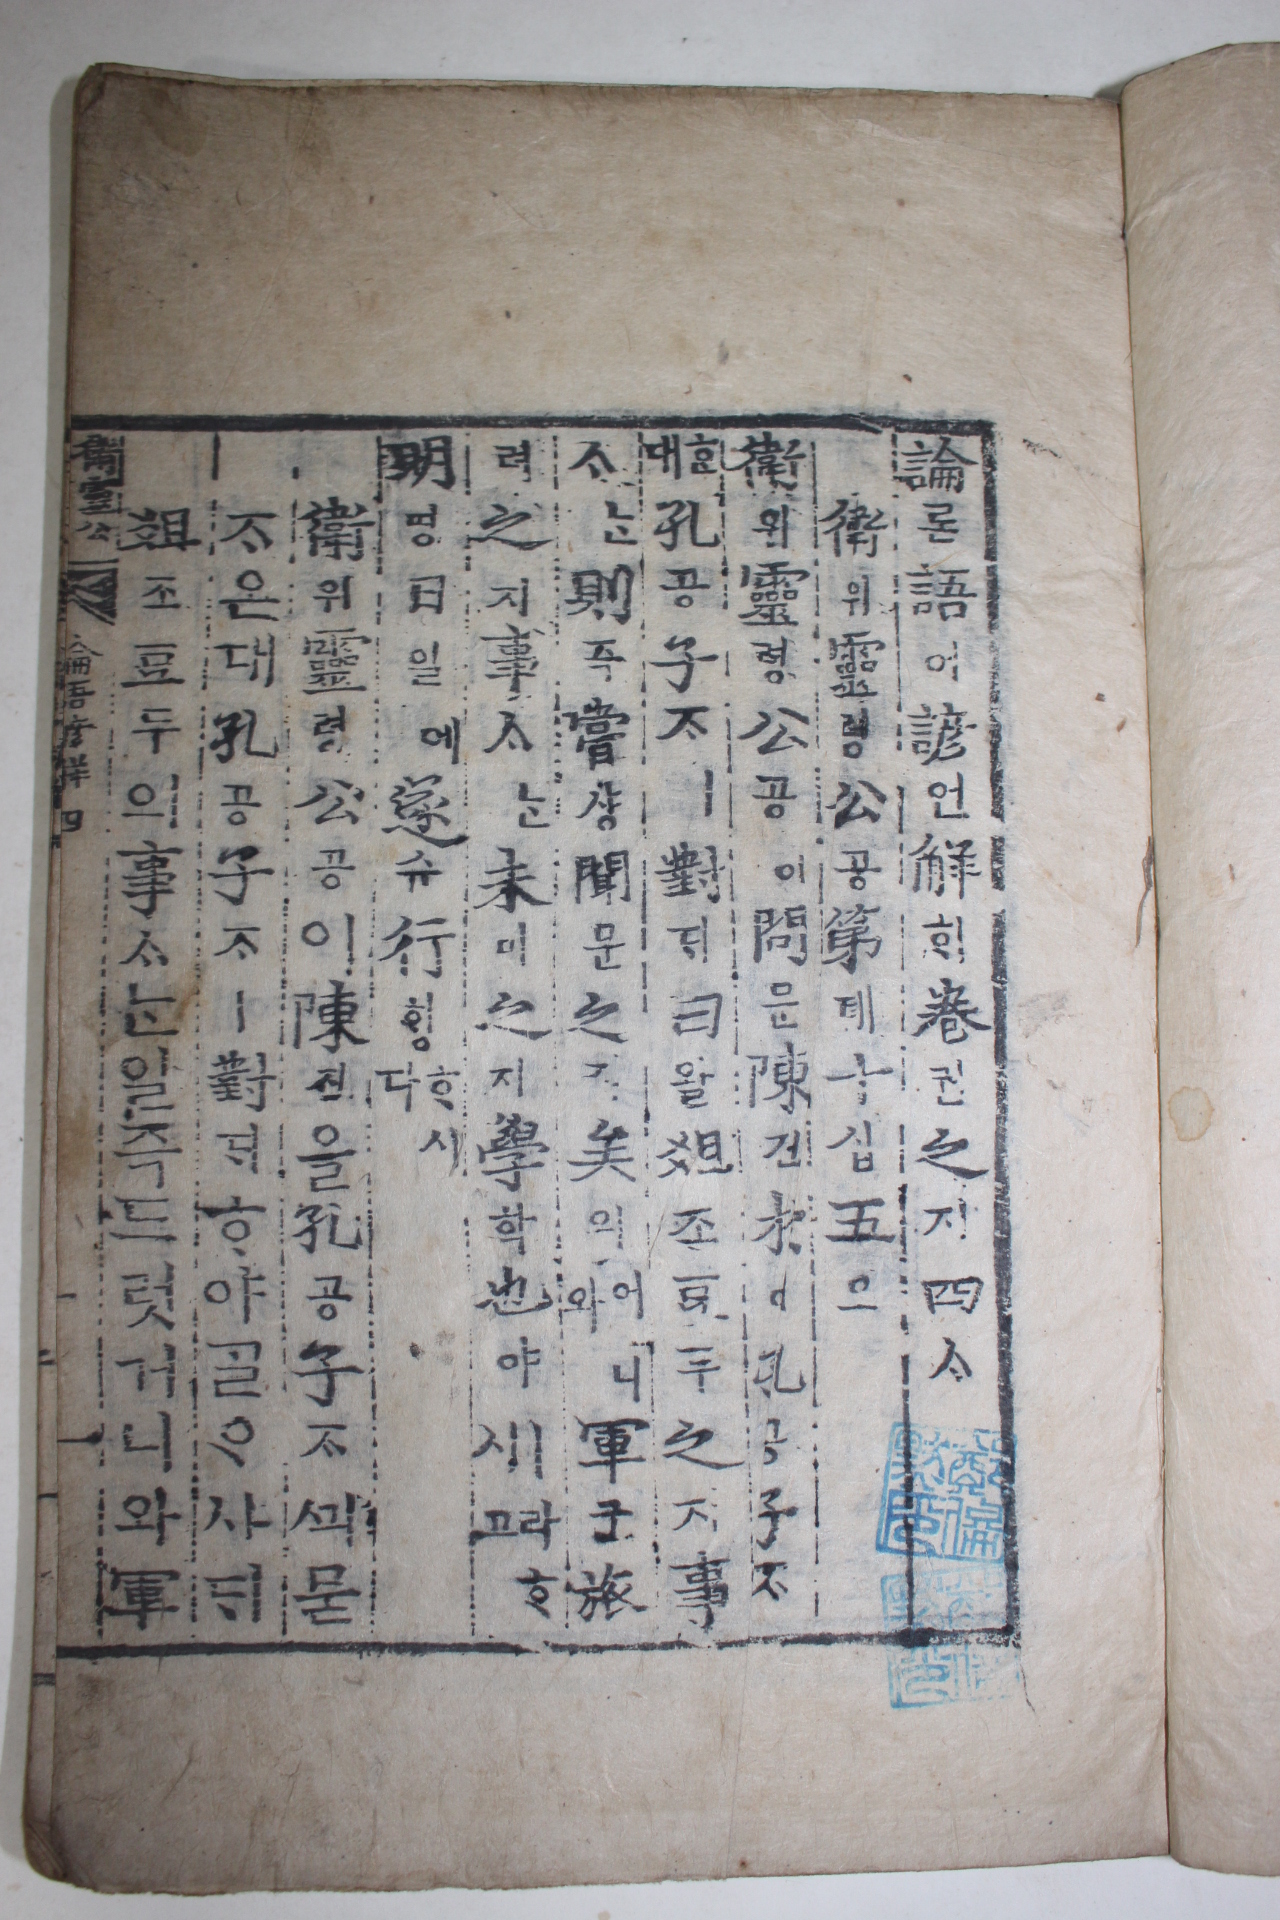 論론語어諺언解ᄒᆡ卷권之지四ᄉᆞ
衛위靈령公공第뎨十십五오
衛위靈령公공이問문陳딘於어孔공子ᄌᆞ
ᄒᆞᆫ대孔공子ᄌᆞㅣ對ᄃᆡ曰왈俎조豆두之지事
ᄉᆞᄂᆞᆫ則즉嘗샹聞문之지矣의어니와軍군旅
려之지事ᄉᆞᄂᆞᆫ未미之지學ᄒᆞᆨ也야ㅣ라ᄒᆞ시고
明명日일에遂슈行ᄒᆡᆼᄒᆞ시다
衛위靈령公공이陳딘을孔공子ᄌᆞᄭᅴ묻
ᄌᆞ온대孔공子ᄌᆞㅣ對ᄃᆡᄒᆞ야ᄀᆞᆯᄋᆞ샤ᄃᆡ
俎조豆두의事ᄉᆞᄂᆞᆫ일즉드럿거니와軍
衛靈公 論語諺解四